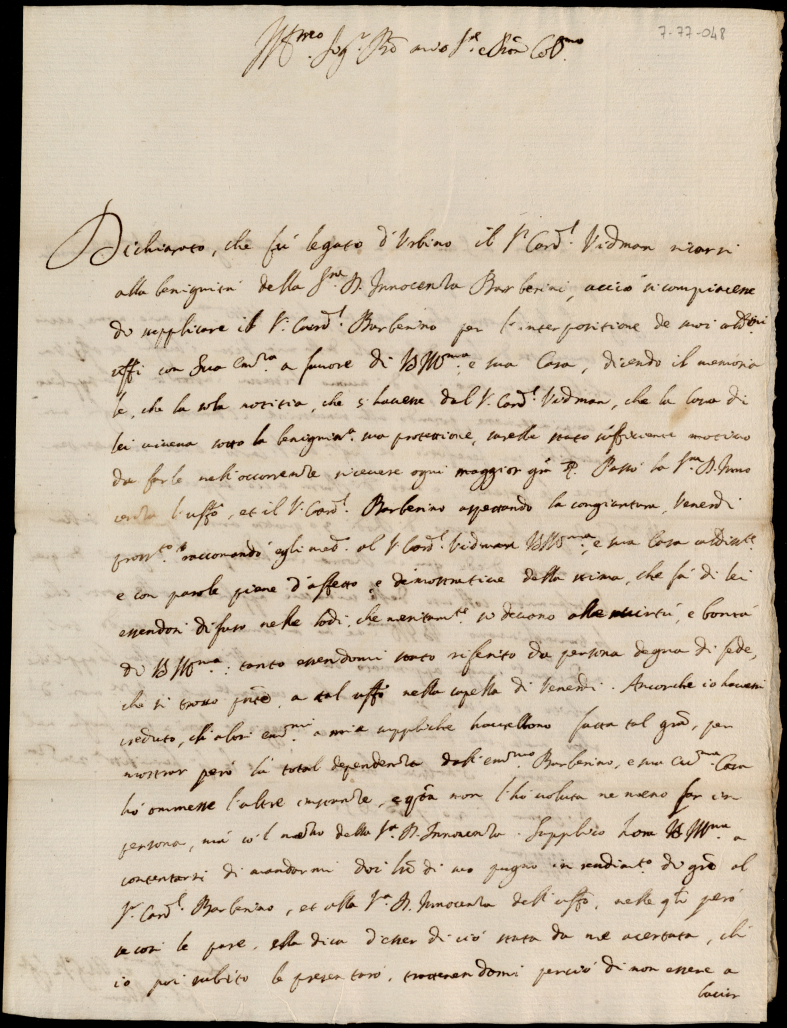 7-77-048
Ill.mo Sig.r P͠ro mio S.r e P͠ron Col.mo
Dichiarato, che fu legato d'Urbino il S.r Card.l Vidman ricorsi
alla benignità della S.ra D. Innocenza Barberini, acciò si compiacesse
di supplicare il S.r Card.l Barberino per l'interpositione de suoi
uffi con Sua Em.za a favore di VS Ill.ma e sua Casa, dicendo il memoria
le, che la sola notitia, che s'havesse dal S.r Card.l Vidman, che la Casa di
lei viveva sotto la benigniss.a sua protettione, sarebbe stato sufficiente motivo
da farle nell'occorrenze ricevere ogni maggior gra. Passò la S.ra D. Inno
cenza l'uffo, et il S.r Card.l Barberino aspettando la congiontura, Venerdì
pross.o raccomandò egli med.o al S.r Card.l Vidman VS Ill.ma, e sua Casa
e con parole piene d'affetto, e demostrative della stima, che fà di lei
essendosi diffuso nelle lodi, che meritam.te si devono alle virtù, e bontà
di VS Ill.ma; tanto essendomi stato riferito da persona degna di fede,
che si trovò pnte, a tal uffo nella capella di Venerdì. Ancorche io havessi
creduto, ch'altri em.mi a mie suppliche haverebbono fatta tal gra, per
mostrar però la total dependenza dall'em.mo Barberino, e sua Ecc.ma Casa
hò ommesse l'altre instanze, e qta non l'hò voluta ne meno far in
persona, mà co'l mezzo della S.ra D. Innocenza. Supplico hora VS Ill.ma a
contentarsi di mandarmi doi l͠re di suo pugno in rendim.to di gre al
S.r Card.l Barberino, et alla S.ra D. Innocenza dell'uffo, nelle qli però
se così le pare, ella dica d'esser di ciò stata da me accertata, ch'
io poi subito le presentarò, trattenendomi perciò di non essere a
baciar